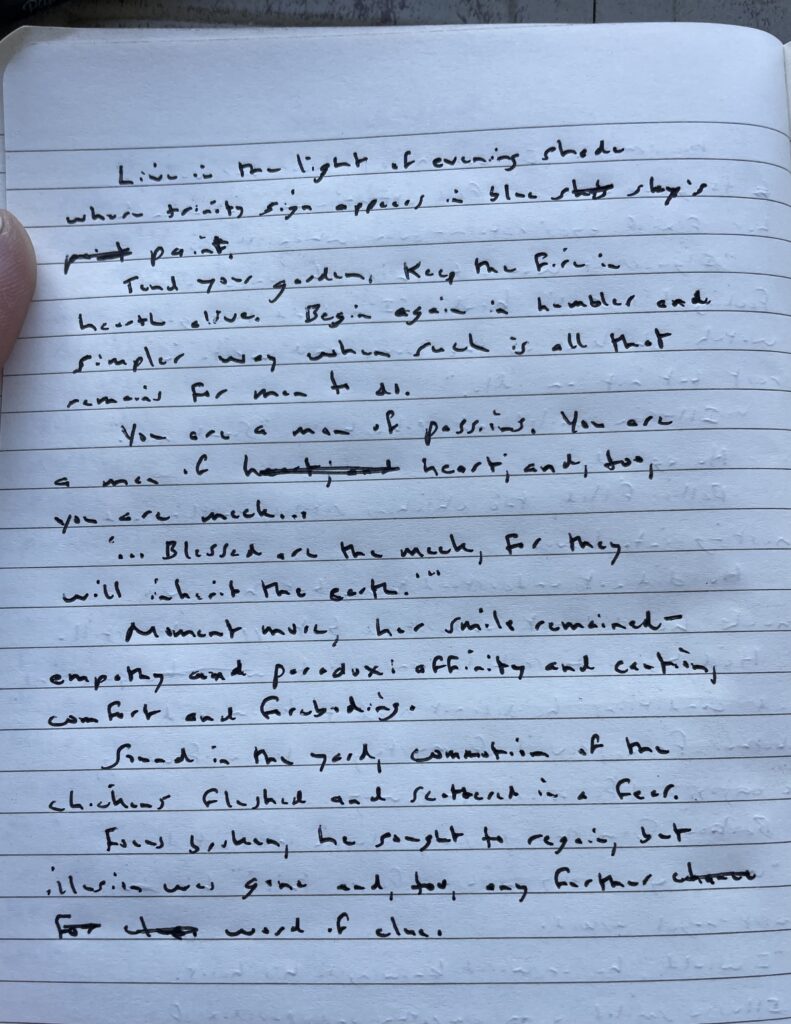 Live in the light of evening shade
where trinity sign appears in blue sky's
paint.
Tend your garden, Keep the fire in
hearth alive. Begin again in humbler and
simpler way when such is all that
remains for men to do.
You are a man of passions. You are
a man of heart; and, too,
you are meek...
'... Blessed are the meek, for they
will inherit the earth.'"
Moment more, her smile remained—
empathy and paradox: affinity and caution,
comfort and foreboding.
Sound in the yard, commotion of the
chickens flushed and scattered in a fear.
Focus broken, he sought to regain, but
illusion was gone and, too, any further
word of clue.